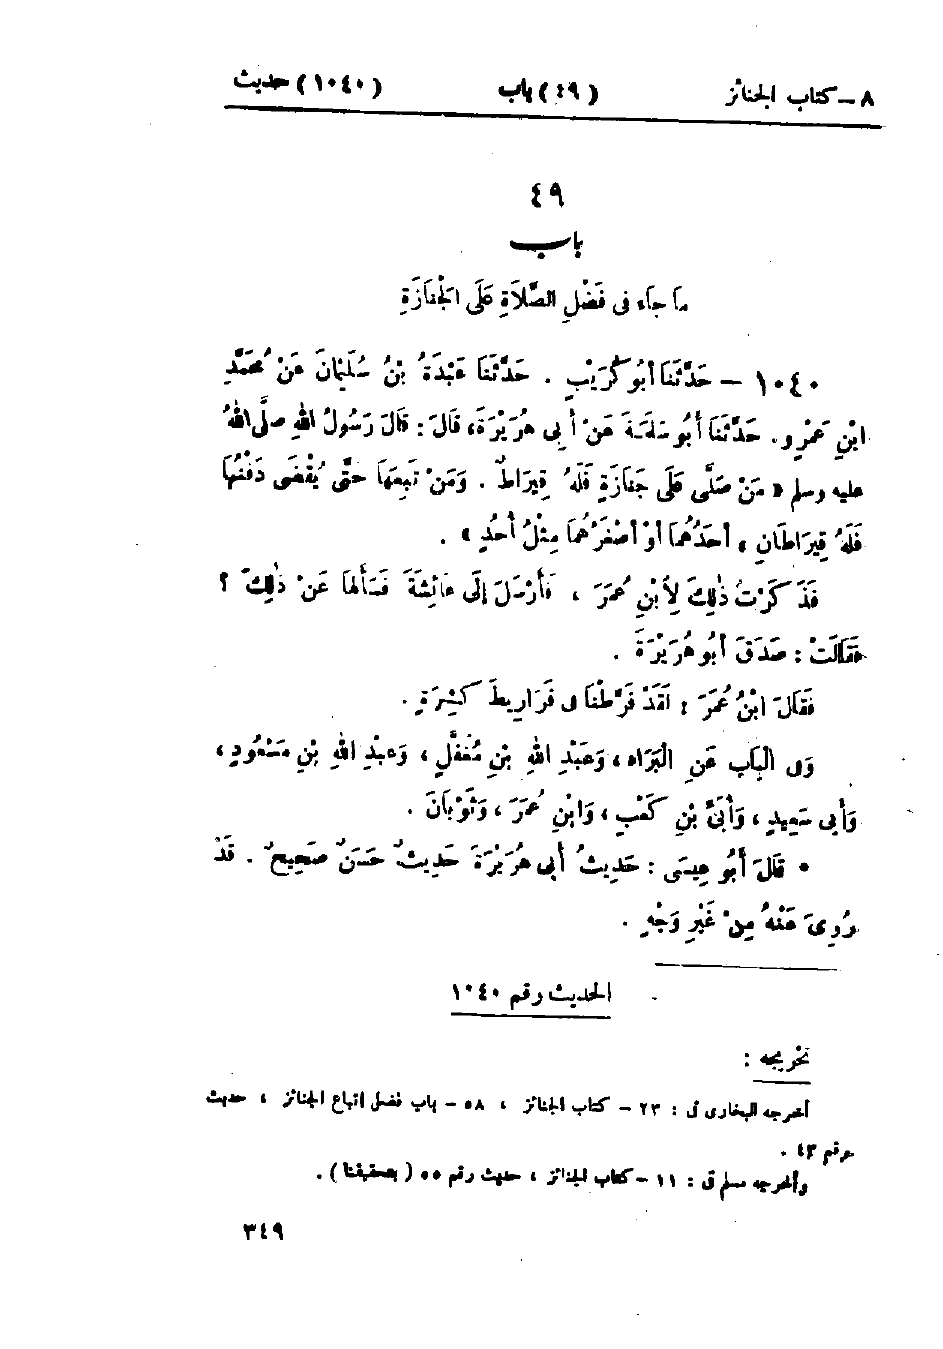 ٨ – كتاب الجنائز (٤٩) باب (١٠٤٠) حديث
٤٩
باب
مَا جَاءَ فى فَضْلِ الصَّلَاةِ عَلَى الْجَنَازَةِ
١٠٤٠ – حَدَّثَنَا أَبُو كُرَيْبٍ . حَدَّثَنَا عَبْدَةُ بْنُ سُلَيْمَانَ عَنْ مُحَمَّدِ
ابْنِ عَمْرٍو. حَدَّثَنَا أَبُو سَلَمَةَ عَنْ أَبِى هُرَيْرَةَ، قَالَ : قَالَ رَسُولُ اللهِ صلَّى اللهُ
عليه وسلم « مَنْ صَلَّى عَلَى جَنَازَةٍ فَلَهُ قِيرَاطٌ . وَمَنْ تَبِعَهَا حَتَّى يُقْضَى دَفْنُهَا
فَلَهُ قِيرَاطَانِ ، أَحَدُهُمَا أَوْ أَصْغَرُهُمَا مِثْلُ أُحُدٍ » .
فَذَ كَرْتُ ذٰلِكَ لِابْنِ عُمَرَ ، فَأَرْسَلَ إِلَى عَائِشَةَ فَسَأَلَهَا عَنْ ذٰلِكَ ؟
فَقَالَتْ : صَدَقَ أَبُو هُرَيْرَةَ .
فَقَالَ ابْنُ عُمَرَ : لَقَدْ فَرَّطْنَا فى قَرَارِيطَ كَثِيرَةٍ .
وَفى الْبَاب عَنِ الْبَرَاء ، وَعَبْدِ اللهِ بْنِ مُغَفَّلٍ ، وَعبْدِ اللهِ بْنِ مَسْعُودٍ ،
وَأَبِى سَعِيدٍ ، وَأُبَىِّ بْنِ كَعْبٍ ، وَابْنِ عُمَرَ ، وَثَوْبَانَ .
• قَالَ أَبُو عِيسَى : حَدِيثُ أَبِى هُرَيْرَةَ حَدِيثٌ حَسَنٌ صَحِيحٌ . قَدْ
رُوِىَ عَنْهُ مِنْ غَيْرِ وَجْهٍ .
الحديث رقم ١٠٤٠
تخريجه :
أخرجه البخارى فى : ٢٣ – كتاب الجنائز ، ٥٨ – باب فضل اتباع الجنائز ، حديث
رقم ٤٣ .
وأخرجه مسلم فى : ١١ – كتاب الجنائز ، حديث رقم ٥٥ ( بتحقيقنا ) .
٣٤٩